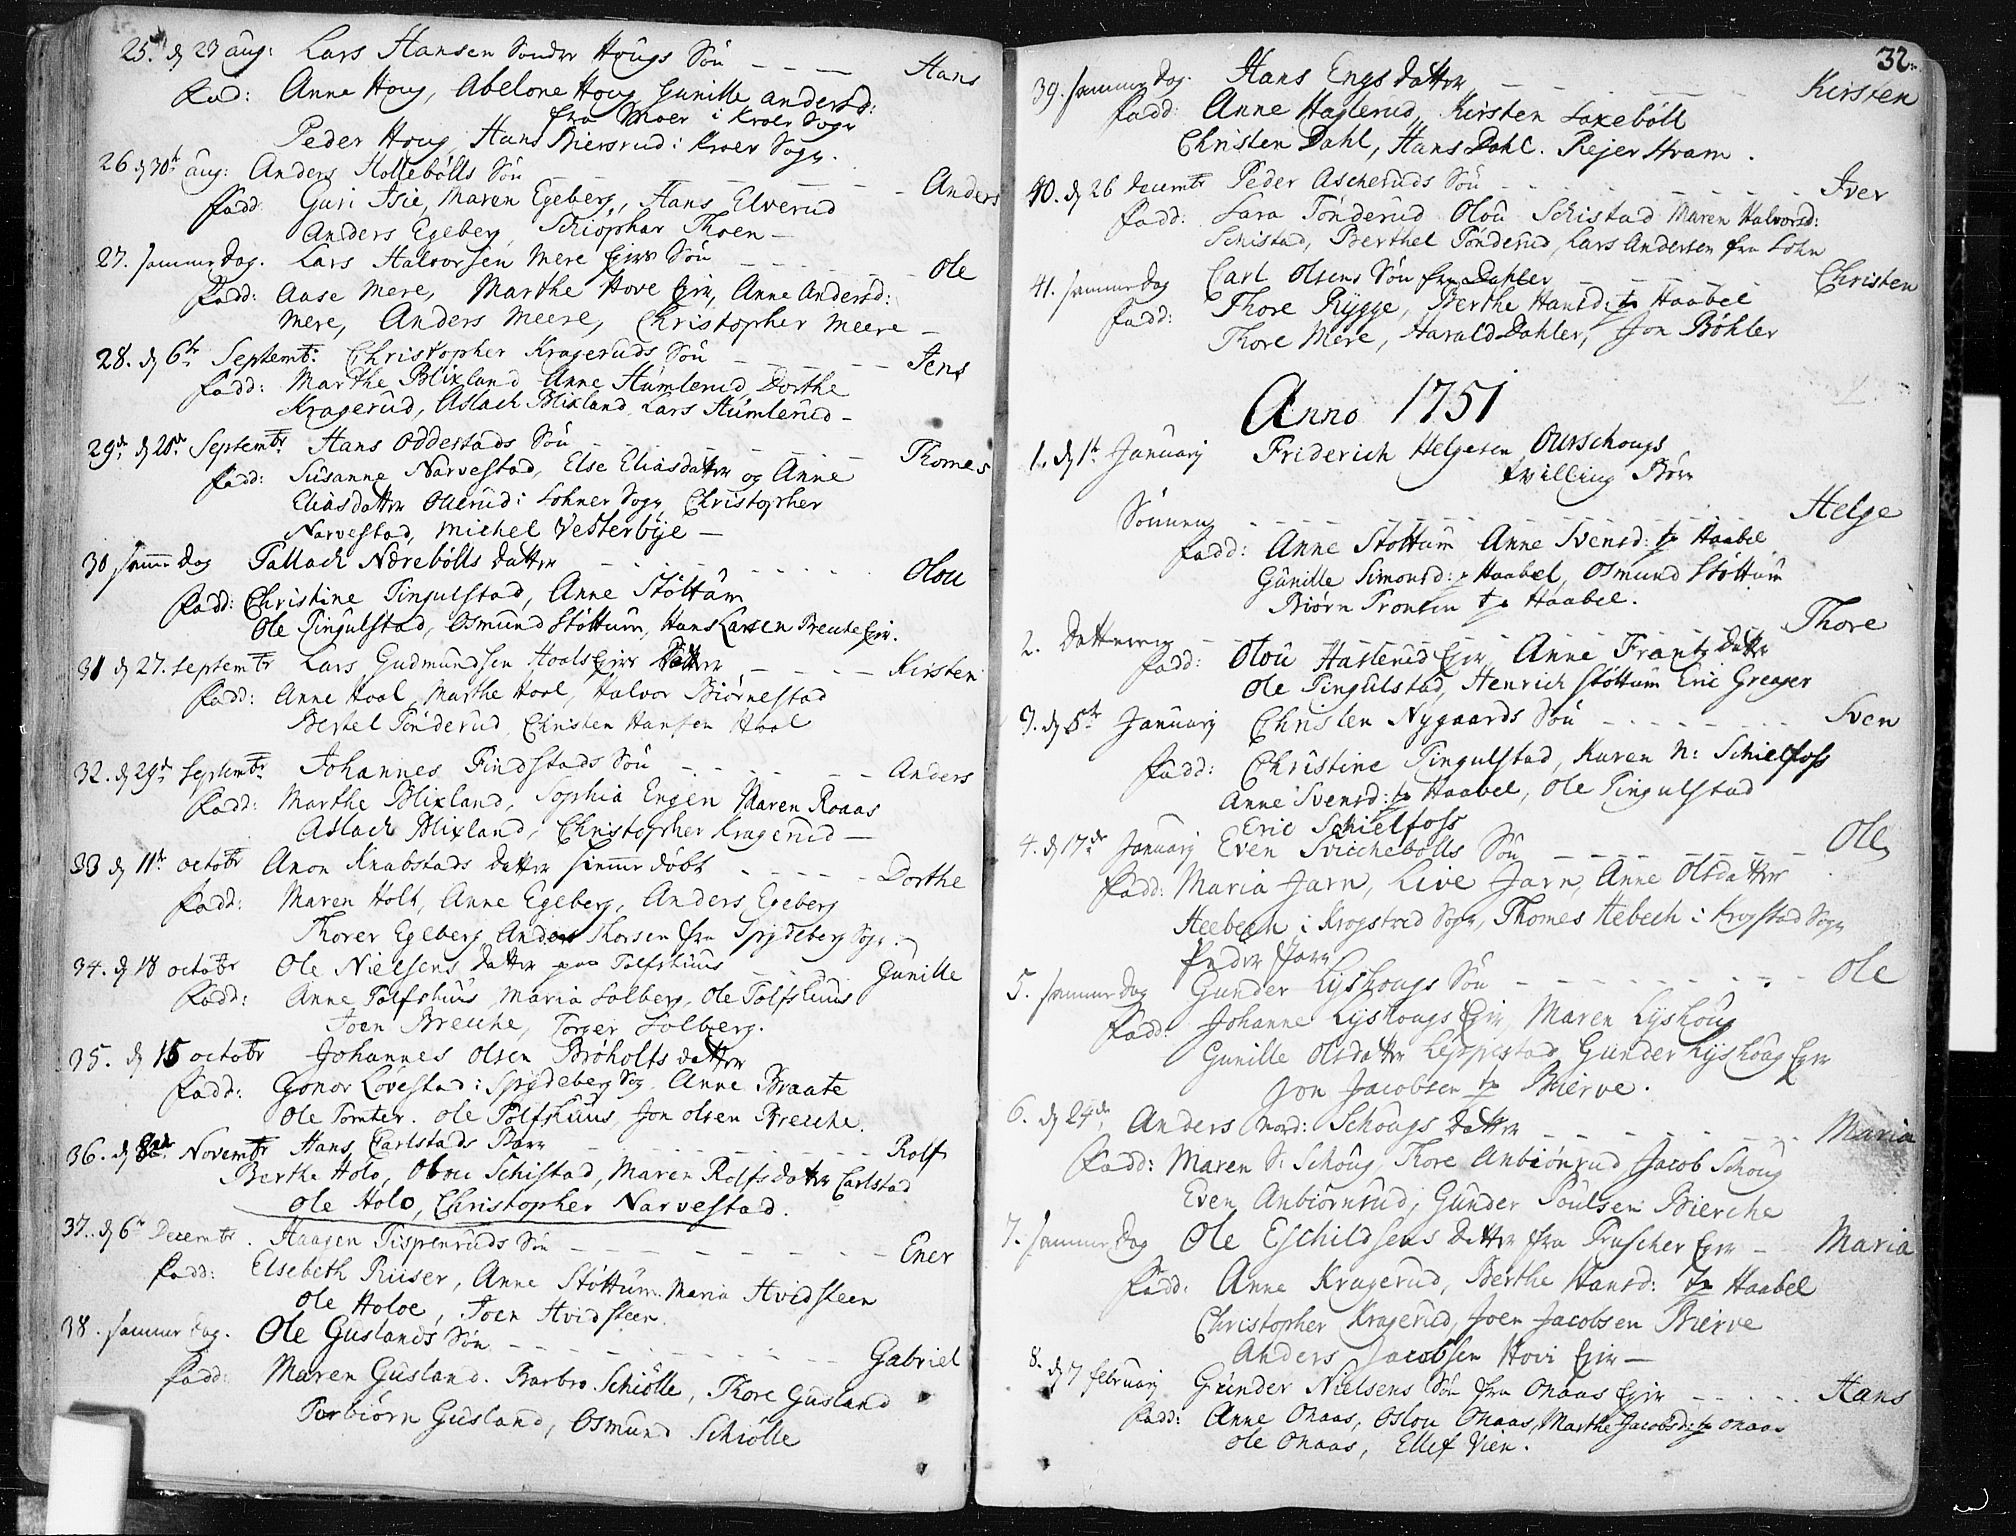 25. d 23 aug: Lars Hansen Sondre Hougs Sön Hans
Fad: Anne Houg, Abelone Houg Gunille andersd:
fra Moer i Kroer Sogn
Peder Houg, Hans Biersrud i Kroer Sogn.
26 d 30t aug: Anders Hollebölls Sön Anders
Fadd: Guri Isie, Maren Egeberg, Hans Elverud
Anders Egeberg, Schiöphar Thoen
27. samme Dag. Lars Halvorsen Mere Eiers Sön Ole
Fadd: Aase Mere, Marthe Hove Eie, Anne Andersd:
Mere, Anders Meere, Christopher Meere
28. d 6te Septemb: Christopher Krageruds Sön Jens
Fadd: Marthe Blixland, Anne Humlerud, Dorthe
Kragerud, Aslach Blixland, Lars Humlerud
29de d 20de Septembr Hans Oddestads Sön Thomes
Fadd: Susanne Narvestad, Else Eliasdatter og Anne
Eliasdatter Ollerud i Sohner Sogn, Christopher
Narvestad, Michel Vesterbye
30 samme dag Tallach Nærebölls datter Olou
Fadd: Christine Tingulstad, Anne Stöttum
Ole Tingulstad, Osmund Stöttum, Hans Larsen Breche Eie.
31 d 27. septembr Lars Gudmundsen Hoels Eies Datter Kirsten
Fadd: Anne Hoel, Marthe Hoel, Halvor Biörnestad
Bertel Tönderud, Christen Hansen Hoel
32. d 29de Septembr Johannes Findstads Sön Anders
Fadd: Marthe Blixland, Sophia Engen Maren Roaas
Aslach Blixland, Christopher Kragerud
33 d 11te octobr Aron Knabstads datter hiemme döbt Dorthe
Fadd: Maren Holt, Anne Egeberg, Anders Egeberg
Thorer Egeberg Anders Thorsen fra Spydeberg Sogn
34. d 18 octobr Ole Nielsens datter paa Tolfshuus Gunille
Fadd: Anne Tolfshuus, Maria Solberg, Ole Tolfshuus
Joen Breche, Torger Solberg.
35. d 15 octobr Johannes Olsen Bröholts datter
Fadd: Gonor Lövestad i Spydeberg Sog, Anne Braate
Ole Tomter. Ole Tolfshuus, Jon Olsen Breche.
36. d 8de Novembr Hans Carlstads Barn Rolf
Berthe Holo, Olou Schistad, Maren Rolfsdatter Carlstad
Ole Holo, Christopher Narvestad.
37. d 6te Decembr. Haagen Tispenruds Sön Ener
Fadd: Elsebeth Riiser, Anne Stöttum. Maria Hvidsteen
Ole Holoe, Joen Hvidsteen.
38. samme dag. Ole Guslands Sön Gabriel
Fadd: Maren Gusland. Barbro Schiölle, Thore Gusland
Torbiörn Gusland, Osmund Schiölle
32.
39. samme Dag. Hans Engs datter Kirsten
Fadd: Anne Haglerud, Kirsten Saxeböll
Christen Dahl, Hans Dahl. Rejer Hvam.
40. d 26 Decembr Peder Ascheruds Sön Iver
Fadd: Sara Tönderud Olou Schistad Maren Halvorsd:
Schistad, Berthel Tönderud, Lars Andersen fra Sohn
41. samme Dag Carl Olsens Sön fra Dahler Christen
Fadd: Thore Rygge, Berthe Hansd: fra Haabel
Thore Mere, Harald Dahler, Jon Böhler
Anno 1751
1. d 1te January Friderich Helgesen Ourschougs
tvilling Börn
Sönnen Helge
Fadd: Anne Stöttum Anne Svensd: fra Haabel
Gunille Simonsd: fra Haabel, Osmund Stöttum
Biörn Fronten fra Haabel.
2. Datteren Thore
Fadd: Olou Haslerud Eie, Anne Frantzdatter
Ole Tingulstad, Henrich Stöttum Eric Greager
3. d 5te January Christen Nygaards Sön Sven
Fadd: Christine Tingulstad, Karen N: Schielfoss
Anne Svensd: fra Haabel, Ole Tingulstad
Eric Schielfoss
4. d 17de January Even Svichebölls Sön Ole
Fadd: Maria Jarn, Live Jarn, Anne Olsdatter
Heebech i Krogstad Sogn, Thomes Hebech i Krogstad Sogn
Peder Jarn
5. samme Dag Gunder Lyshougs Sön Ole
Fadd: Johanne Lyshougs Eie, Maren Lyshoug
Gunille Olsdatter Leppestad Gunder Lyshoug Eie
Jon Jacobsen fra Bierve.
6. d 24de Anders Nord: Schougs Datter Maria
Fadd: Maren S: Schoug, Thore Anbiörnrud Jacob Schoug
Even Anbiörnrud, Gunder Poulsen Bierche
7. samme Dag Ole Eschildsens Datter fra Pruscher Eie Maria
Fadd: Anne Kragerud, Berthe Hansd: fra Haabel
Christopher Kragerud, Joen Jacobsen Bierve
Anders Jacobsen Hovi Eie
8. d 7 february Gunder Nielsens Sön fra Onaas Eie Hans
Fadd: Anne Onaas, Oslou Onaas, Marthe Jacobsd: fra Onaas
Ole Onaas, Ellef Vien.